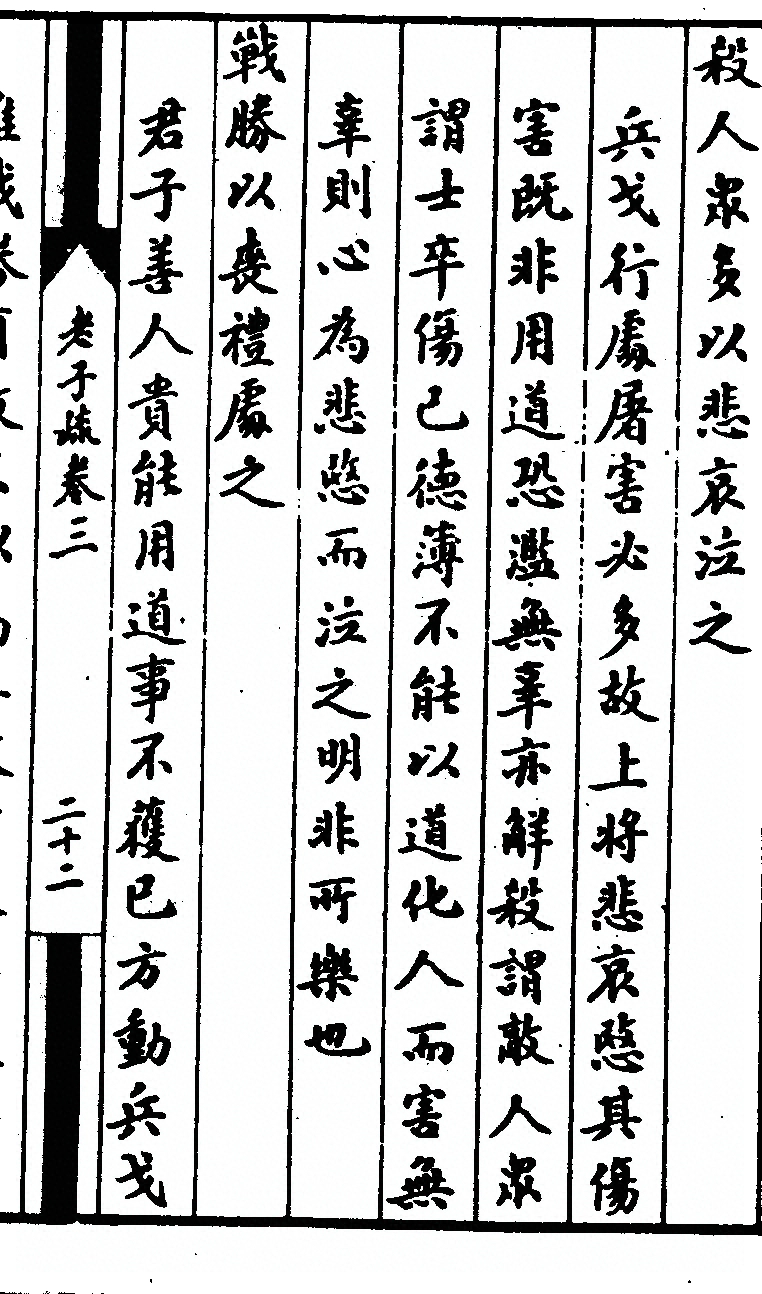 殺人衆多以悲哀泣之
兵戈行處屠害必多故上將悲哀愍其傷
害既非用道恐濫無辜亦解殺謂敵人衆
謂士卒傷己德薄不能以道化人而害無
辜則心為悲愍而泣之明非所樂也
戰勝以喪禮處之
君子善人貴能用道事不獲已方動兵戈
老子疏卷三
二十二